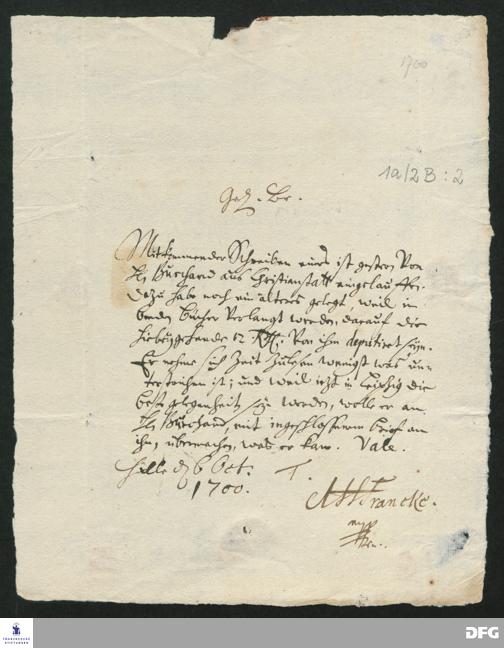 1700
1a/2 B : 2
Gel. Br.
Mitkommender Schreiben eines ist gestern von
H. Burchard aus Christianstatt eingelauffen.
Dazu habe noch ein älteres gelegt, weil in
beyden Bücher verlangt werden, darauf die
hiebeygehende 12 Rthl. von ihm deputiret seyn.
Er nehme sich Zeit zulesen wenigst was un-
terstrichen ist; und weil itzt in Leipzig die
beste gelegenheit seyn werden, wolle er an
H. Burchard, mit ingeschlossenem brief an
ihn, übermachen, was er kan. Vale.
Halle d. 6 Oct. T.
1700.
AHFrancke.
mpp
FRANCKESCHE
STIFTUNGEN
DFG